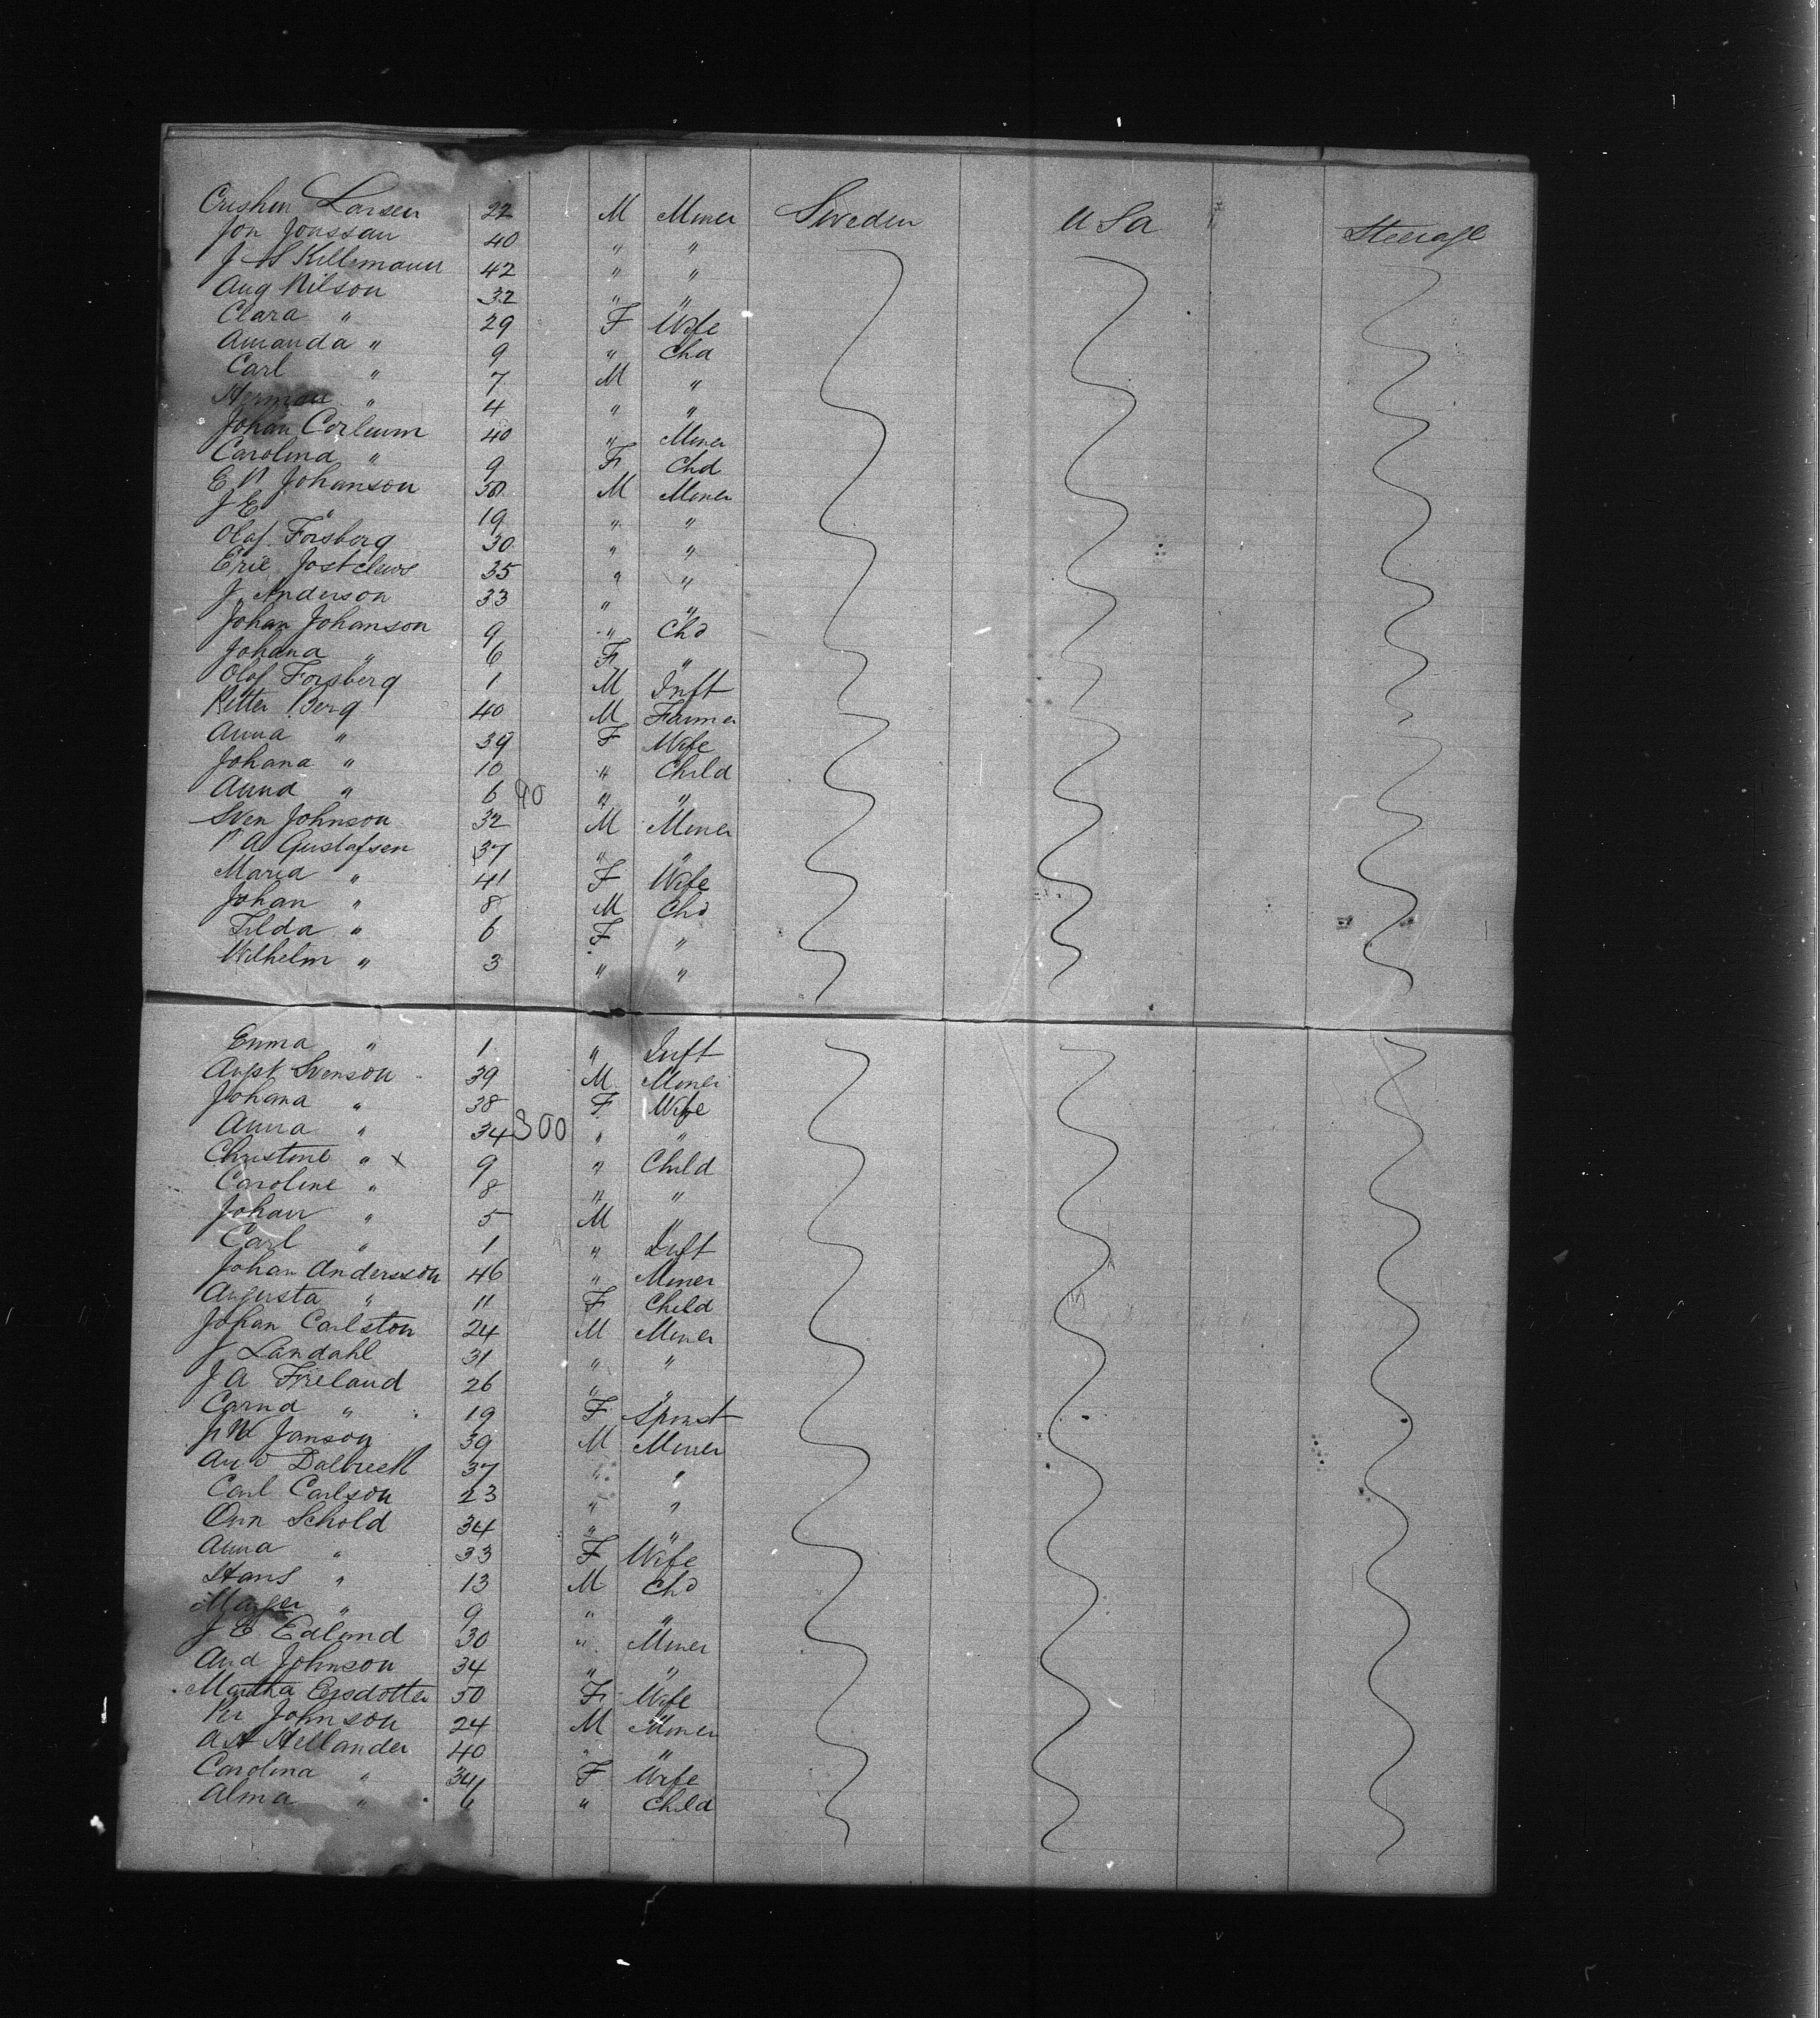 Crishen Larsen 22 M Miner Sweden U Sa Steerage
Jon Jonssan 40 " "
J Killimann 42 " "
Aug Nilson 32 " "
Clara " 29 F Wife
Amanda " 9 " Chd
Carl " 7 M "
Herman " 4 " "
Johan Corleum 40 " Miner
Carolina " 9 F Chd
E N Johanson 30 M Miner
J E " 19 " "
Olaf Forsberg 30 " "
Eric 35 " "
J Anderson 33 " "
Johan Johanson 9 " Chd
Johana " 6 F "
Olof Forsberg 1 M Inft
Petter Berg 40 M Farmer
Anna " 39 F Wife
Johana " 10 " Child
Anna " 6 90 " "
Sven Johnson 32 M Miner
P A Gustafsen 37 " "
Maria " 41 F Wife
Johan " 8 M Chd
Tilda " 6 F "
Wilhelm " 3 " "
Emma " 1 " Inft
Augst Svenson 39 M Miner
Johana " 38 F Wife
Anna " 34 300 " "
Christine " x 9 " Child
Caroline " 8 " "
Johan " 5 M "
Carl " 1 " Inft
Johan Andersson 46 " Miner
Augusta " 11 F Child
Johan Carlston 24 M Miner
J Landahl 31 " "
J A Frieland 26 " "
Carna " 19 F Spinst
Janson 39 M Miner
Dalbreck 37 " "
Carl Carlson 23 " "
Orn Schold 34 " "
Anna " 33 F Wife
Hans " 13 M Chd
" 9 " "
J E Edlund 30 " Miner
And Johnson 34 " "
Martha Ersdotter 50 F Wife
Per Johnson 24 M Miner
A H Hellander 40 " "
Carolina " 34 F Wife
Alma " 6 " Child